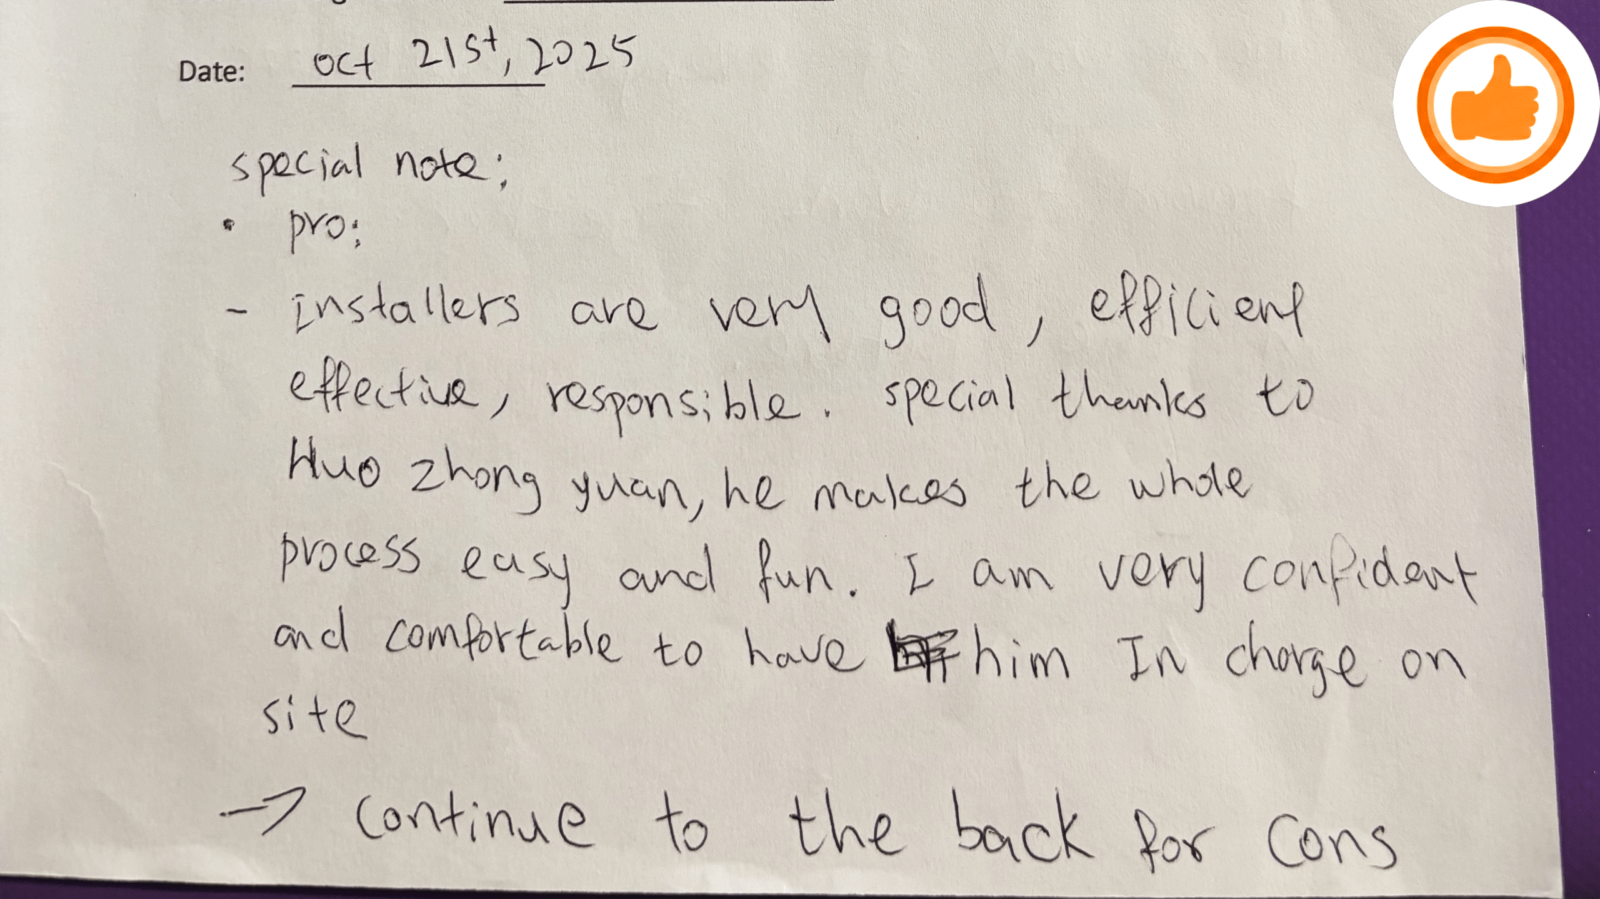 Date: oct 21st, 2025
special note:
• pro:
- installers are very good, efficient
effective, responsible. special thanks to
Huo zhong yuan, he makes the whole
process easy and fun. I am very confident
and comfortable to have him In charge on
site
→ continue to the back for cons